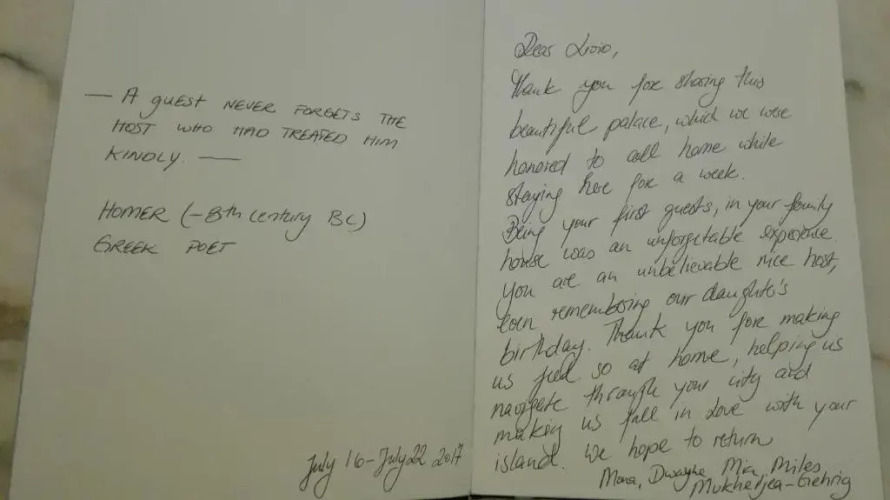 — A guest NEVER FORGETS THE
HOST WHO HAD TREATED HIM
KINDLY. —
HOMER (-8th century BC)
GREEK POET
July 16-July 22 2017
Dear Livio,
Thank you for sharing this
beautiful palace, which we were
honored to call home while
staying here for a week.
Being your first guests, in your family
house was an unforgetable experience.
You are an unbelievable nice host,
even remembering our daughter's
birthday. Thank you for making
us feel so at home, helping us
navigate through your city and
making us fall in love with your
island. We hope to return
Mona, Dwayne, Mia, Miles
Mukherjea-Gehrig